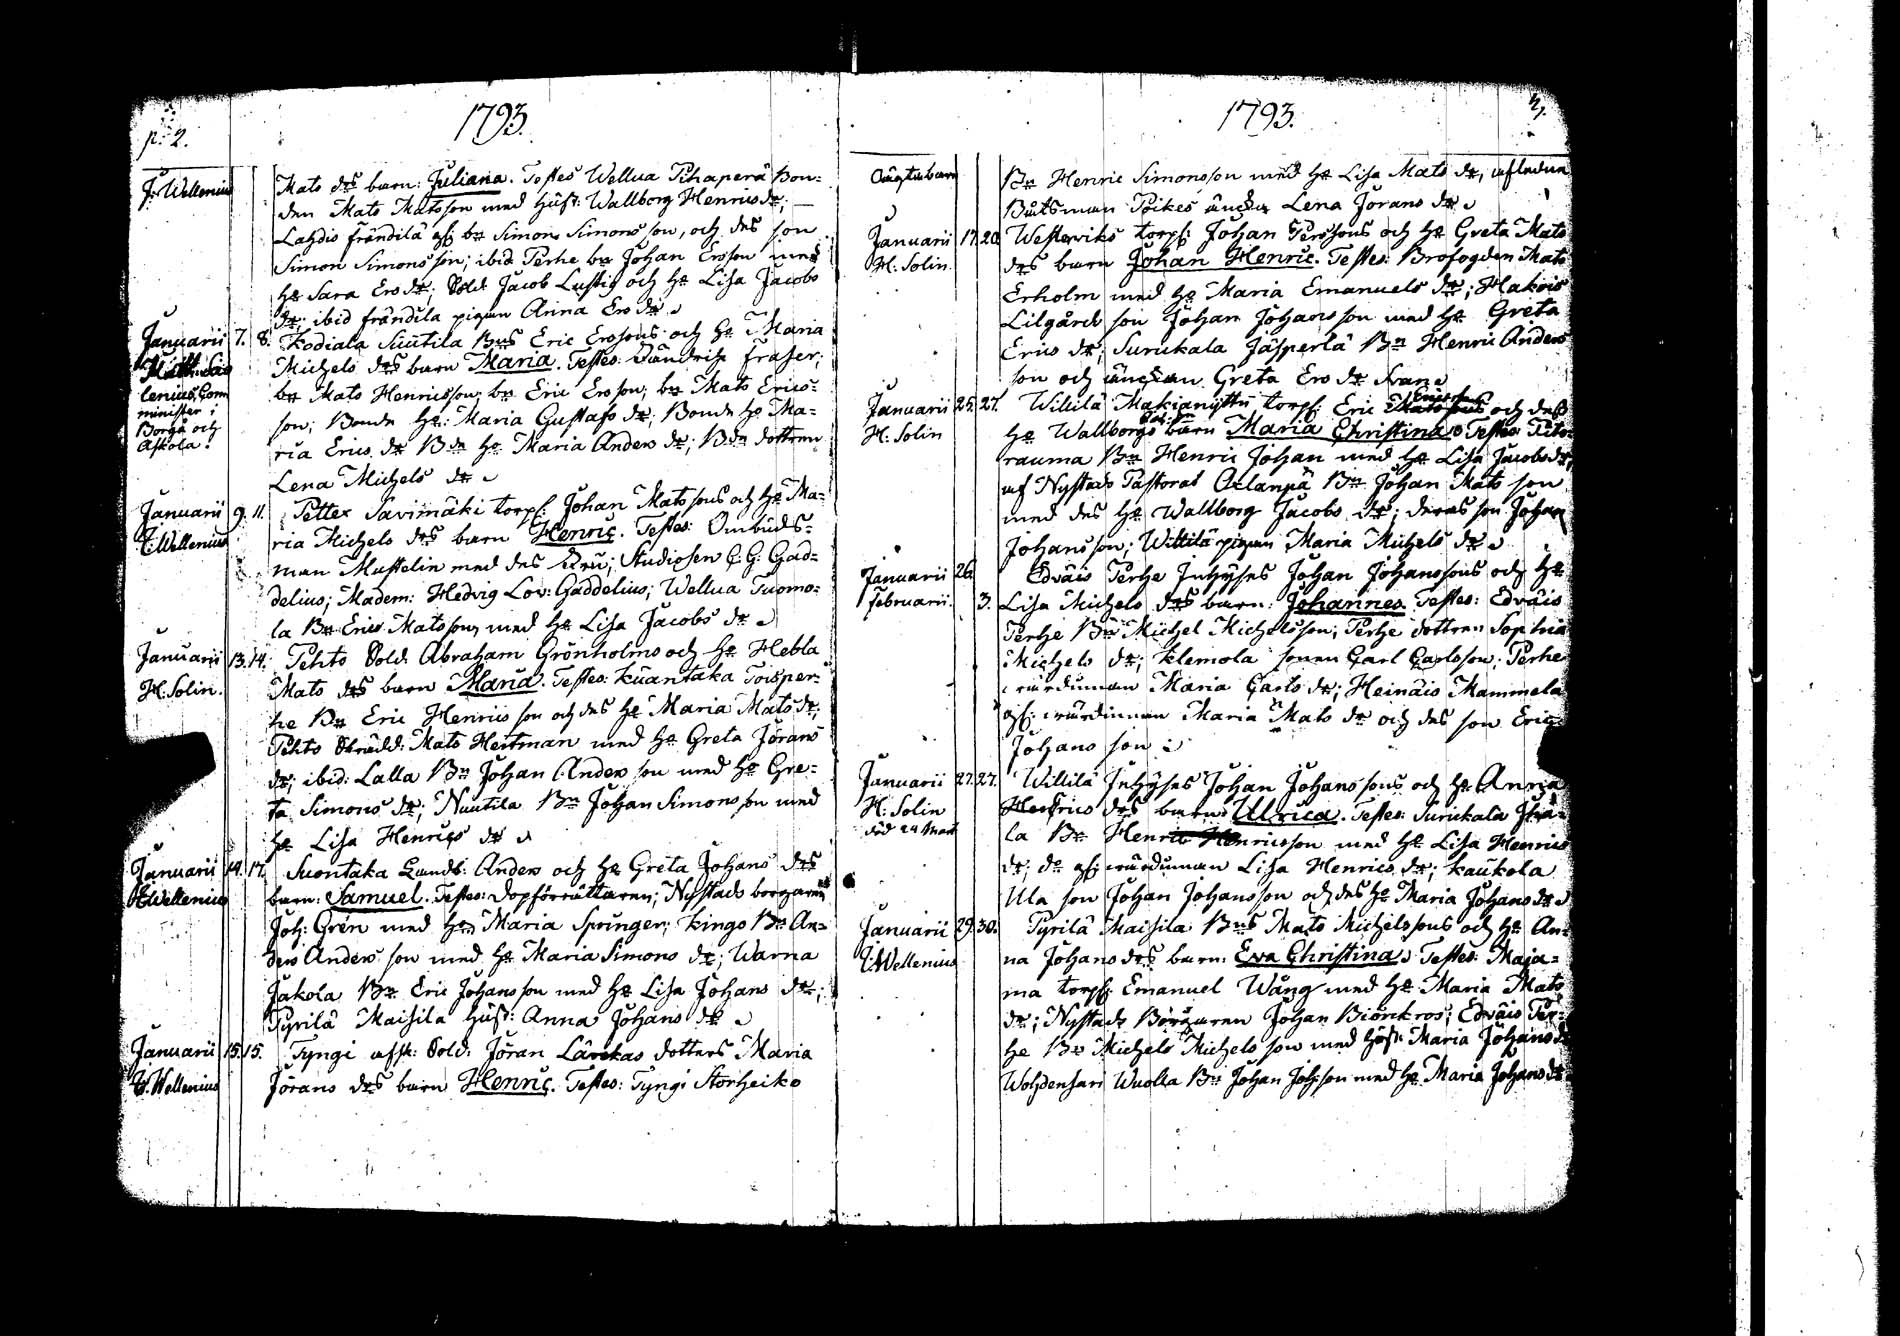 p. 2.
1793.
J: Wellenius
Mats dr:s barn: Juliana. Testes Wellua Pihaperä Bon-
den Mats Matsson med hust: Wallborg Henrics dr; —
Lahdis frändilä gf: bn Simon Simonsson, och des son
Simon Simonsson; ibid Perhe bn Johan Ersson med
h: Sara Ers dr; Sold: Jacob Lustig och h: Lisa Jacobs
dr; ibid frändila pigan Anna Ers dr
Januarii 7. 8. Kodiala Suutila Bns Eric Erssons och h: Maria
lenius, Com
minister i
Borgå och
Askola.
Michels dr:s barn Maria. Testes:
bn Mats Henricsson; bn Eric Ersson; bn Mats Erics-
son; Bonde h: Maria Gustafs dr; Bonde h: Ma-
ria Erics dr Bde h: Maria Anders dr; Bde dottren
Lena Michels dr
Januarii 9. 11. Petter Savimäki torp: Johan Matssons och h: Ma-
E: Wellenius
ria Michels dr:s barn Henric. Testes: Ombuds-
man Mustelin med des Fru; Studiosen G: G: Gad-
delius; Madem: Hedvig Lov: Gaddelius; Wellua Tuomo-
la Bn Erics Matsson med h: Lisa Jacobs dr
Januarii 13. 14. Pehto Sold: Abraham Grönholms och h: Hebla
H: Solin.
Mats dr:s barn Maria. Testes: Kuantaka Toisper-
he Bn Eric Henrics son och des h: Maria Mats dr;
Pehto Mats Heitman med h: Greta Jörans
dr; ibid: Lalla Bn Johan Anders son med h: Gre-
ta Simons dr; Nuutila Bn Johan Simonsson med
h: Lisa Henrics dr
Januarii 14. 17. Suontaka Lundb: Anders och h: Greta Johans dr:s
E Wellenius
barn: Samuel. Testes: Dopförrättaren; Nystads borgaren
Joh: Grén med h: Maria Springer; Kingo Bn An-
ders Anders son med h: Maria Simons dr; Warna
Jakola Bn Eric Johansson med h: Lisa Johans dr;
Pyrilä Maisila hust: Anna Johans dr
Januarii 15. 15. Tyngi afsk: Sold: Jöran Lärkas dotters Maria
E. Wellenius
Jörans dr:s barn Henric. Testes: Tyngi Storheiko
1793.
3.
Oäkta barn
Bn Henric Simonsson med h: Lisa Mats dr, aflidna
Båtsman Poikes änka Lena Jörans dr
Januarii 17. 20. Westerviks torp: Johan Perssons och h: Greta Mats
H: Solin.
dr:s barn Johan Henric. Testes: Brofogden Mats
Erholm med h: Maria Emanuels dr; Hakois
Lilgårds son Johan Johansson med h: Greta
Erics dr; Surukala Jäsperlä Bn Henric Anders
son och änckan Greta Ers dr Svan
Januarii 25. 27. Willilä Makianyttu torp: Eric Ericssons och deß
H: Solin
h: Wallborgs barn Maria Christina. Testes: Pito-
rauma Bn Henric Johan med h: Lisa Jacobs dr,
af Nystads Pastorat Arlanpä Bn Johan Mats son
med des h: Wallborg Jacobs dr; deras son Johan
Johansson; Willilä pigan Maria Michels dr
Januarii 26. Edväis Perhe Inhyses Johan Johanssons och h:
Februarii. 3. Lisa Michels dr:s barn: Johannes. Testes: Edväis
Perhe Bn Michel Michelsson; Perhe dottren Sophia
Michels dr; Klemola sonen Carl Carlsson; Perhe
värdinnan Maria Carls dr; Heinäis Mammela
gf: wärdinnan Maria Mats dr och des son Eric
Johans son
Januarii 27. 27. Willilä Inhyses Johan Johanssons och h: Anna
H: Solin
död 24 Mart
Henrics dr:s barn: Ulrica. Testes: Surukala
la Bn Henricsson med h: Lisa Henrics
dr; do gf: wärdinnan Lisa Henrics dr; Kaukola
Ula son Johan Johansson och des h: Maria Johans dr
Januarii 29. 30. Pyrilä Maisila Bns Mats Michelssons och h: An-
E: Wellenius
na Johans dr:s barn: Eva Christina. Testes: Maja-
ma torp: Emanuel Wång med h: Maria Mats
dr; Nystads Borgaren Johan Biörkros; Edväis Per-
he Bn Michels Michels son med hust: Maria Johans dr
Wohdensari Wuolla Bn Johan Johsson med h: Maria Johans dr